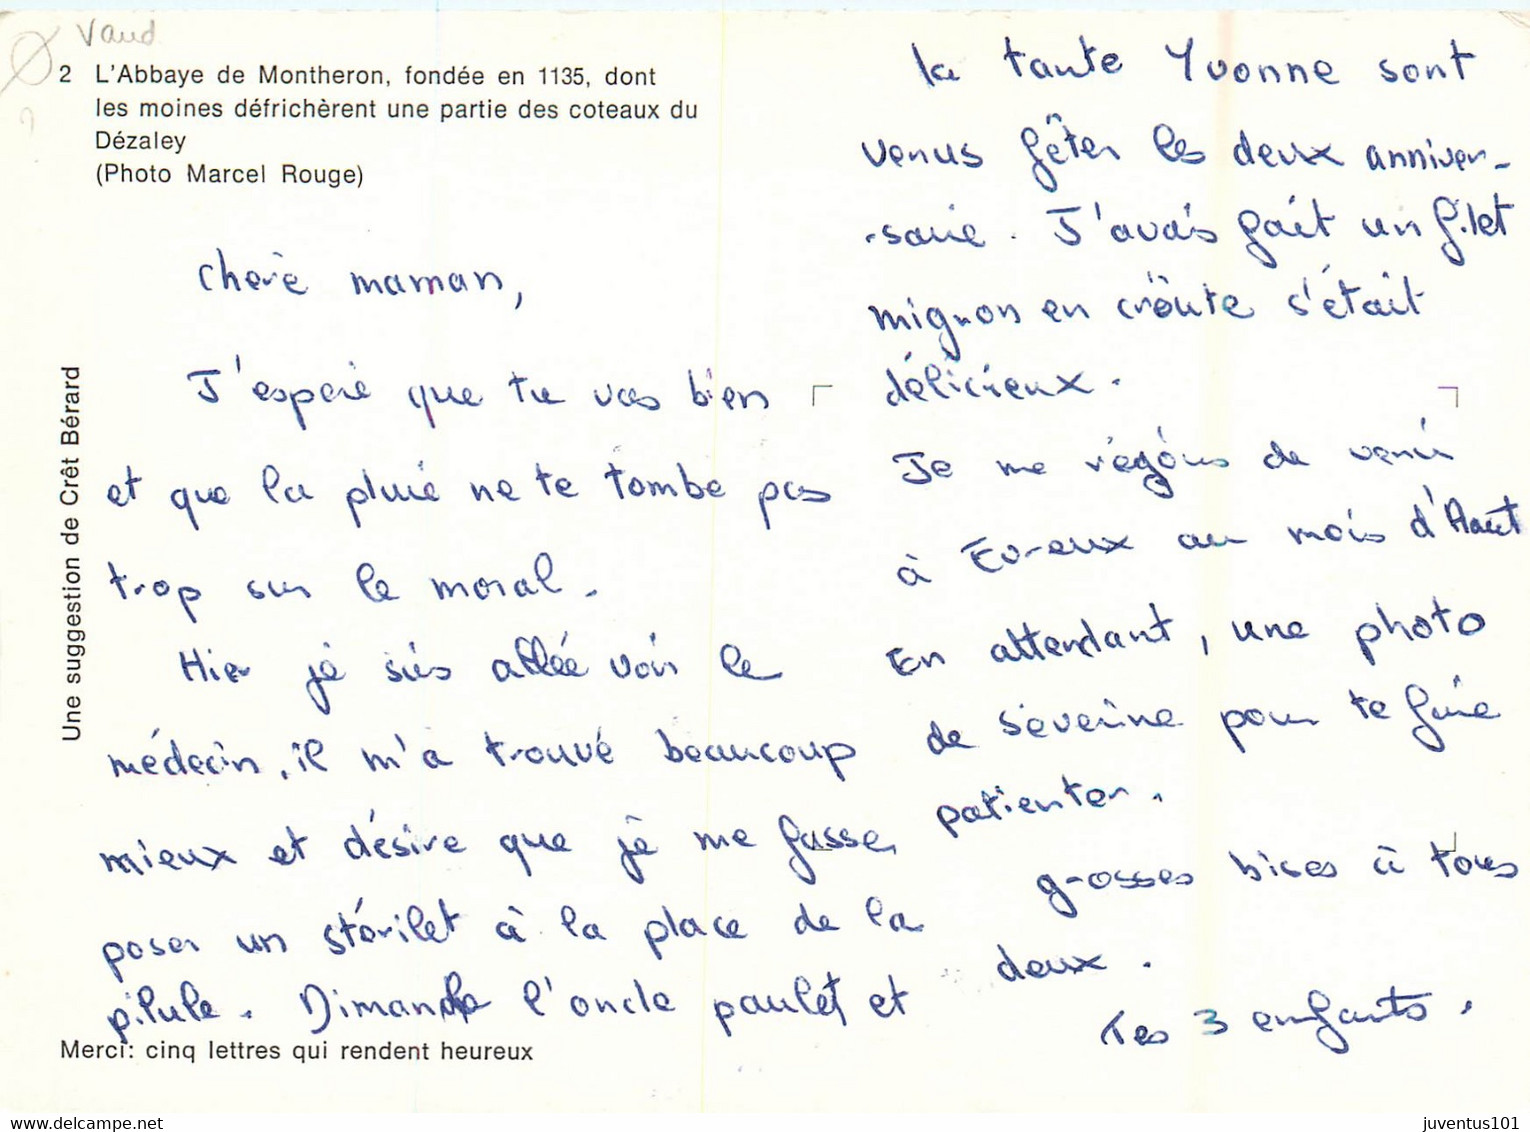 Vaud
2 L'Abbaye de Montheron, fondée en 1135, dont
les moines défrichèrent une partie des coteaux du
Dézaley
(Photo Marcel Rouge)
Une suggestion de Crêt Bérard
chère maman,
J'espère que tu vas bien
et que la pluie ne te tombe pas
trop sur le moral.
Hier je suis allée voir le
médecin, il m'a trouvé beaucoup
mieux et désire que je me fasse
poser un stérilet à la place de la
pilule. Dimanche l'oncle paulet et
Merci: cinq lettres qui rendent heureux
la tante Yvonne sont
venus fêter les deux anniver-
-saire. J'avais fait un filet
mignon en croûte s'était
délicieux.
Je me régouis de venir
à Evreux au mois d'Aout
En attendant, une photo
de séverine pour te faire
patienter.
grosses bises à tous
deux.
Tes 3 enfants.
www.delcampe.net
juventus101